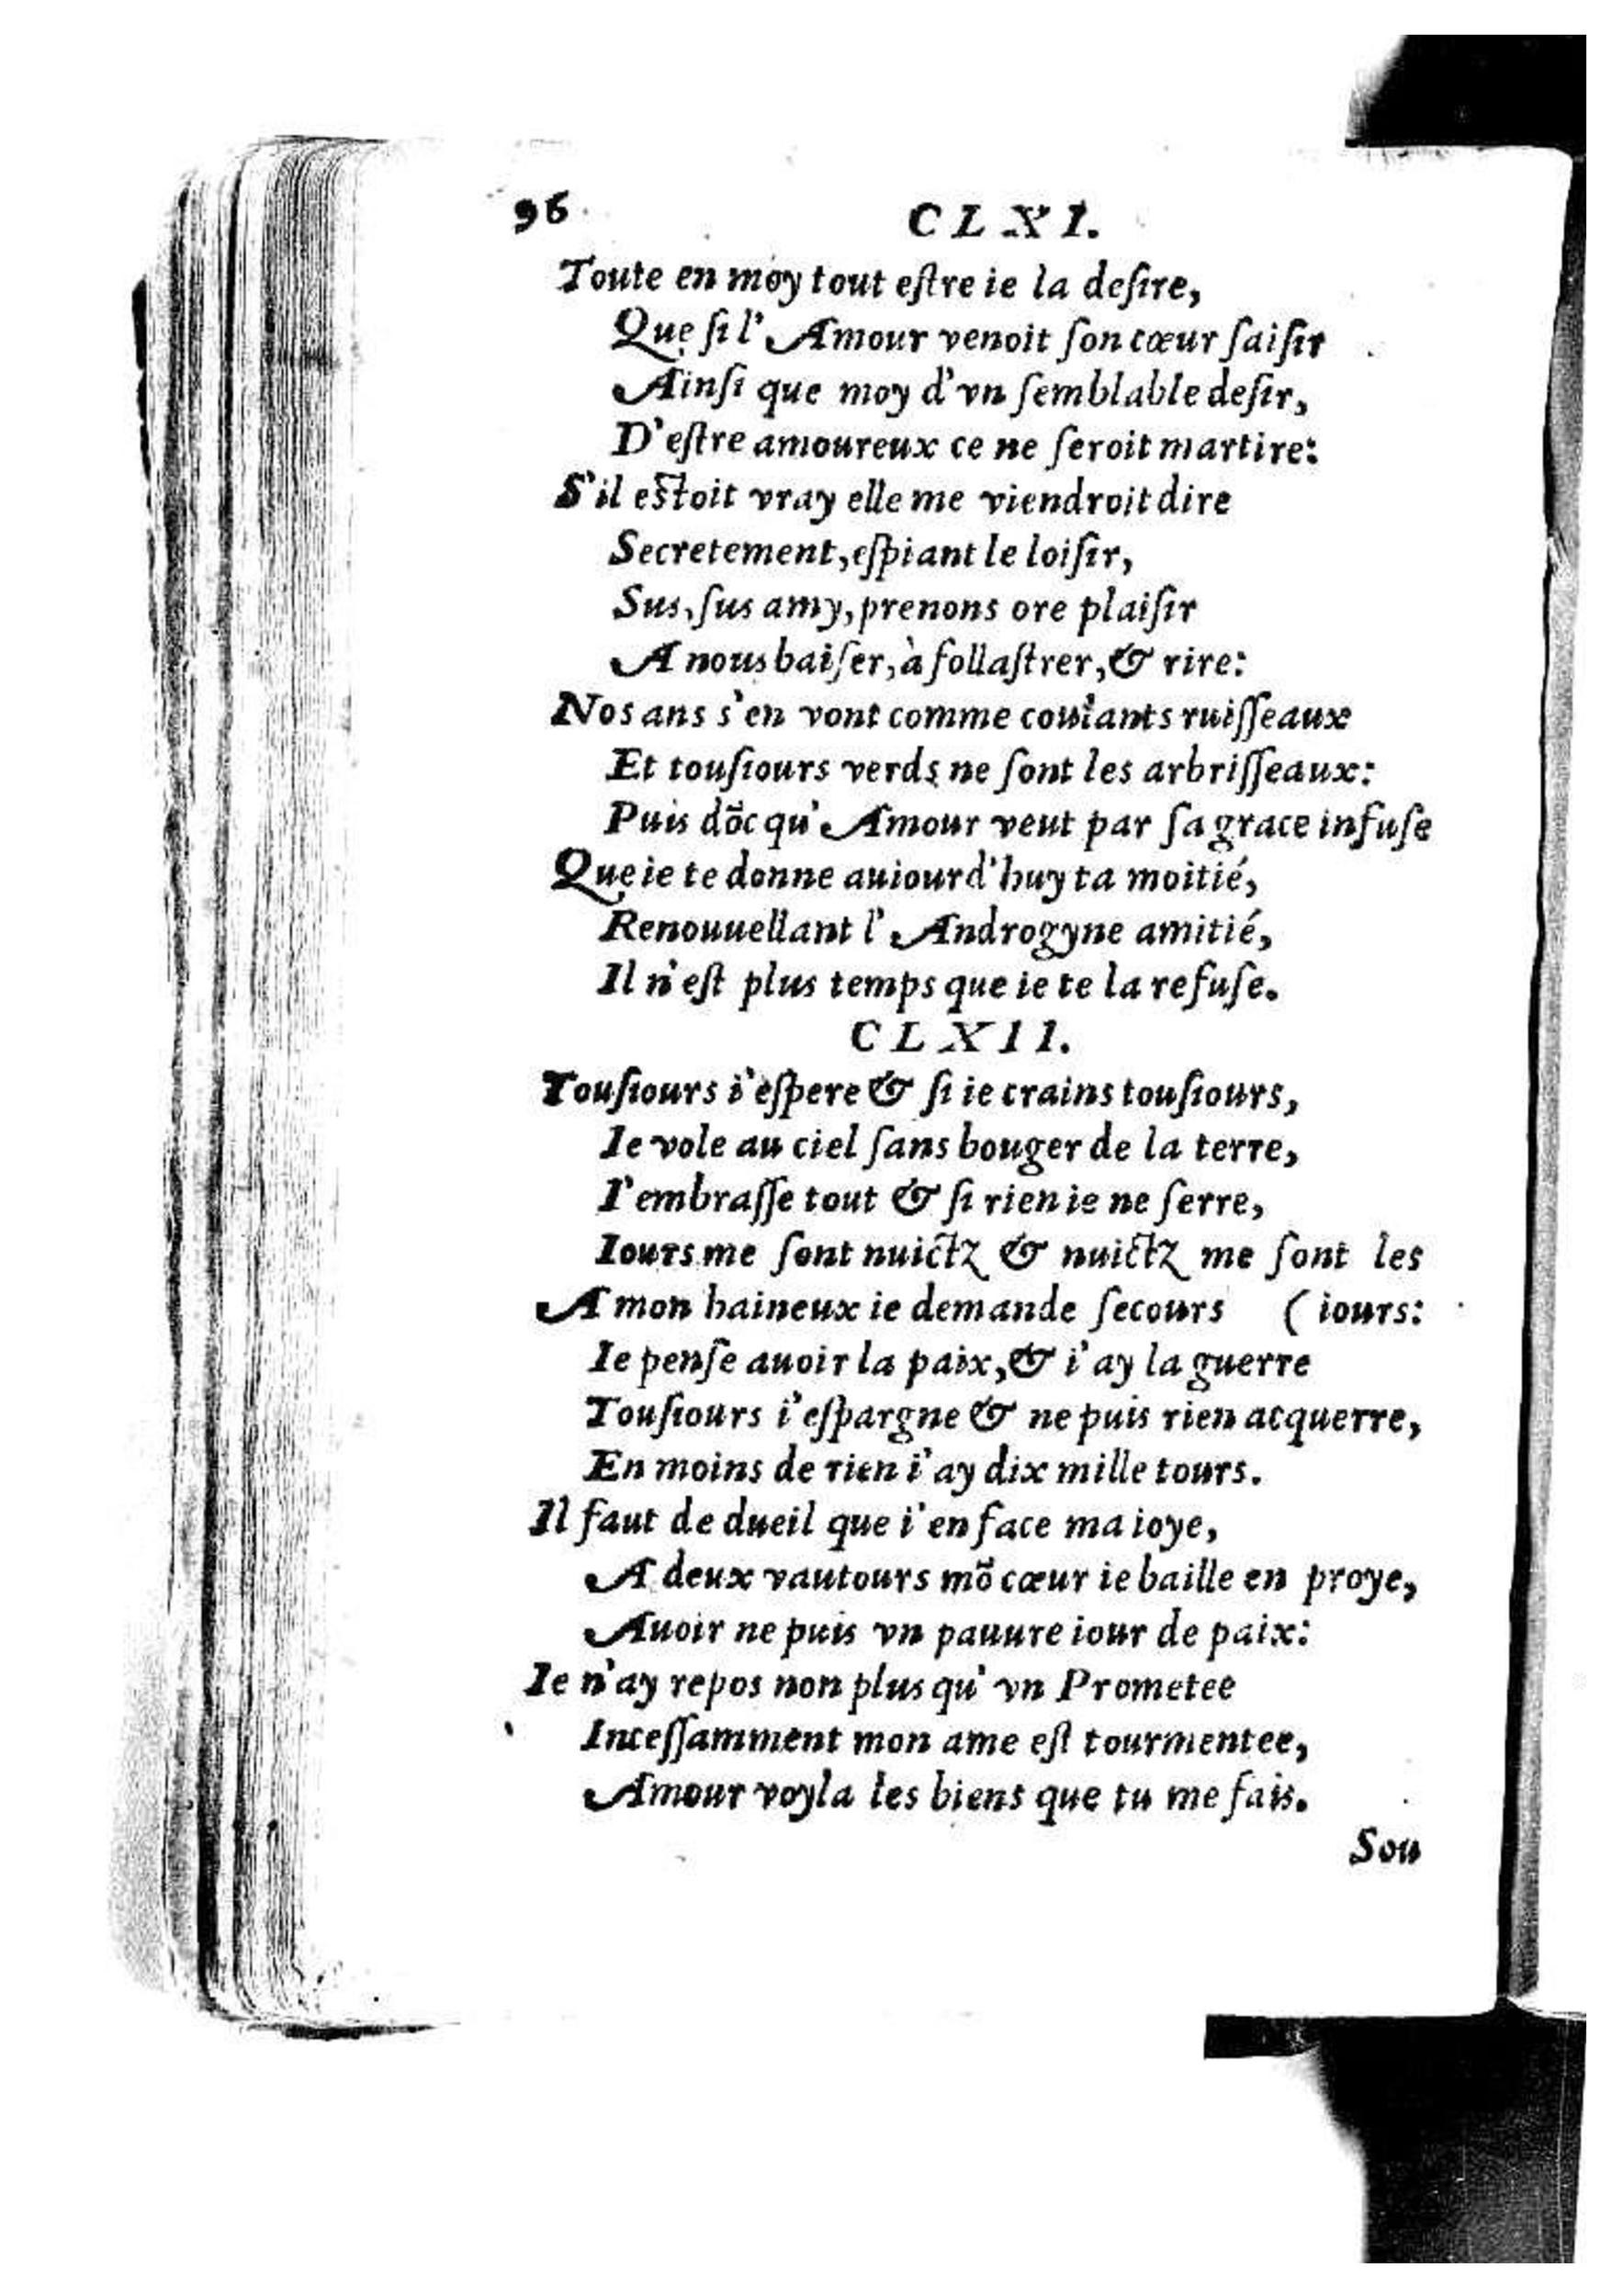 96
CLXI.
Toute en moy tout eſtre ie la deſire,
Que ſi l'Amour venoit ſon cœur ſaiſir
Ainſi que moy d'vn ſemblable deſir,
D'eſtre amoureux ce ne ſeroit martire:
S'il eſtoit vray elle me viendroit dire
Secretement, eſpiant le loiſir,
Sus, ſus amy, prenons ore plaiſir
A nous baiſer, à follaſtrer, & rire:
Nos ans s'en vont comme coulants ruiſſeaux
Et touſiours verds ne ſont les arbriſſeaux:
Puis dõc qu'Amour veut par ſa grace infuſe
Que ie te donne auiourd'huy ta moitié,
Renouuellant l'Androgyne amitié,
Il n'eſt plus temps que ie te la refuſe.
CLXII.
Touſiours i'eſpere & ſi ie crains touſiours,
Ie vole au ciel ſans bouger de la terre,
I'embraſſe tout & ſi rien ie ne ſerre,
Iours me ſont nuictz & nuictz me ſont les
A mon haineux ie demande ſecours (iours:
Ie penſe auoir la paix, & i'ay la guerre
Touſiours i'eſpargne & ne puis rien acquerre,
En moins de rien i'ay dix mille tours.
Il faut de dueil que i'en face ma ioye,
A deux vautours mõ cœur ie baille en proye,
Auoir ne puis vn pauure iour de paix:
Ie n'ay repos non plus qu'vn Prometee
Inceſſamment mon ame eſt tourmentee,
Amour voyla les biens que tu me fais.
Sou